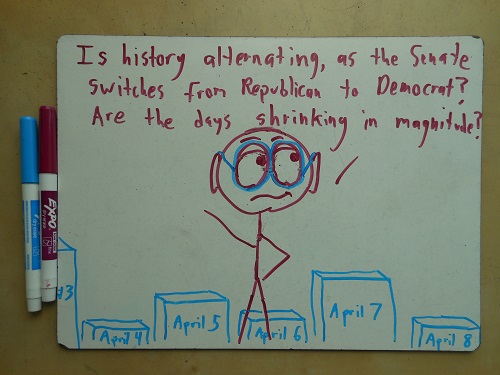 Is history alternating, as the Senate
switches from Republican to Democrat?
Are the days shrinking in magnitude?
EXPO
April 4
April 5
April 6
April 7
April 8